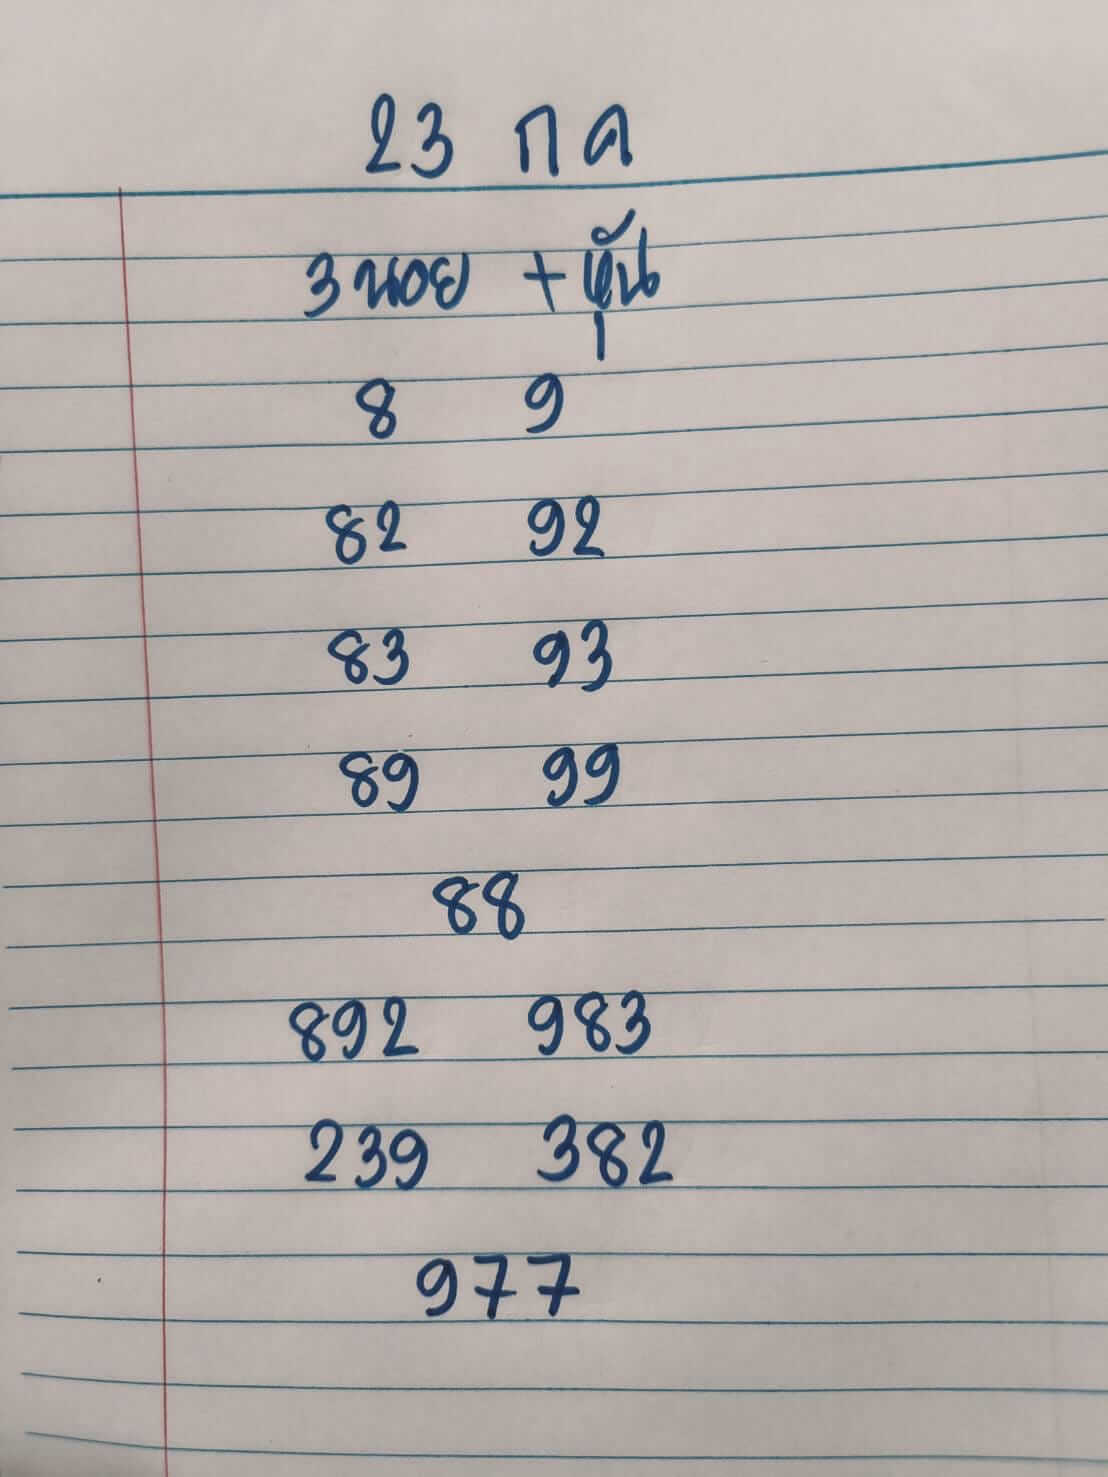 23 กค
3 นอย + หุ้น
8 9
82 92
83 93
89 99
88
892 983
239 382
977